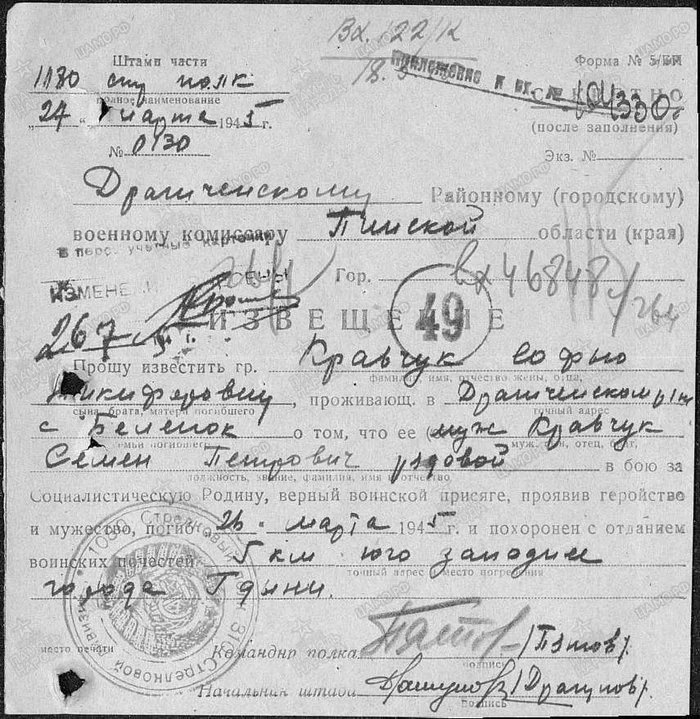 Вх. 22/к
Штамп части
Форма № 5/БП
1180 стр полк
18.5
Приложение к вх. №
полное наименование
330
„24“ марта 1945 г.
(после заполнения)
№ 0130
Экз. №
Драгиченскому Районному (городскому)
военному комиссару Пинской области (края)
в перс. учетные карточки
Гор. вх 46848/264
ИЗМЕНЕ
ены
49
ИЗВЕЩЕНИЕ
267
Прошу известить гр. Кравчук Софью
фамилия, имя, отчество жены, отца,
Никифоровну, проживающ. в Драгиченском р-не
сына, брата, матери погибшего
точный адрес
с Беленок о том, что ее муж Кравчук
семьи погибшего
муж, сын, отец, брат,
Семен Петрович рядовой в бою за
должность, звание, фамилия, имя и отчество
Социалистическую Родину, верный воинской присяге, проявив геройство
и мужество, погиб 26 марта 1945 г. и похоронен с отданием
воинских почестей 5 км юго западнее
точный адрес место погребения
города Гдыни.
место печати
Командир полка /Пятов/
подпись
Начальник штаба /Драгунов/
подпись
Стрелковый
Стрелковой
ЦАМО РФ